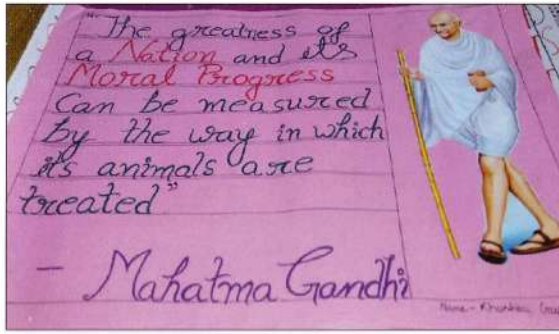 "The greatness of
a Nation and its
Moral Progress
Can be measured
by the way in which
its animals are
treated"
- Mahatma Gandhi
Name-